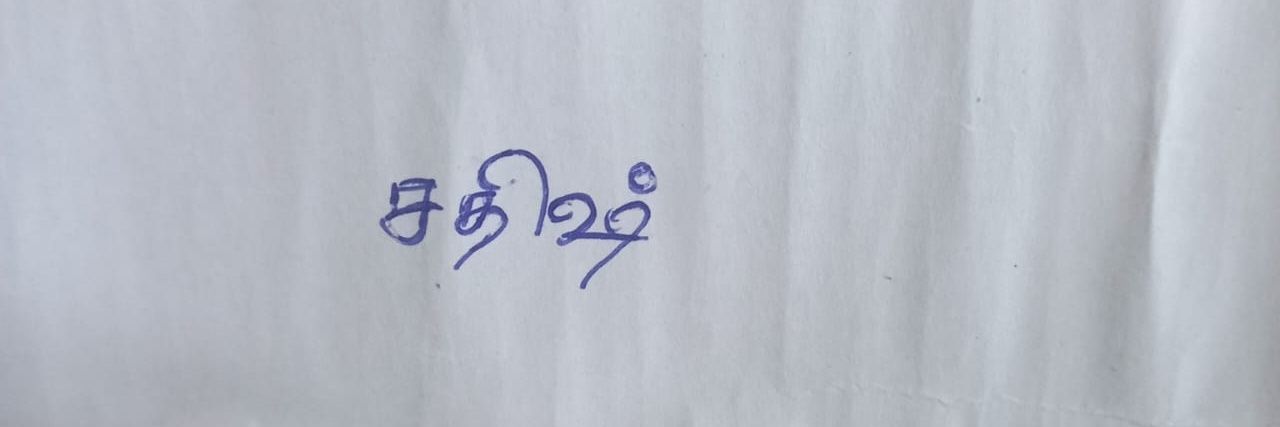 சதிஷ்